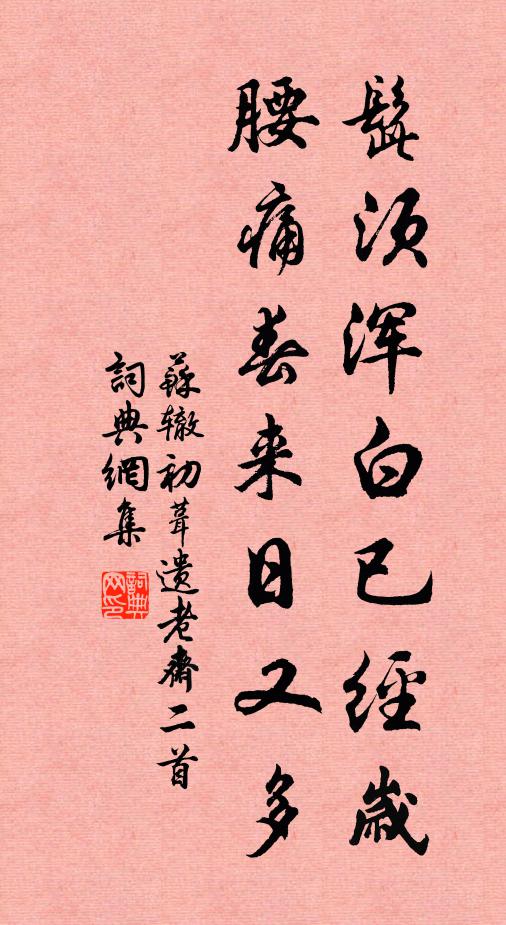 髭须浑白已經歲
腰痛春来日又多
蘇辙初葺遗老齋二首
詞典網集
詞典网印